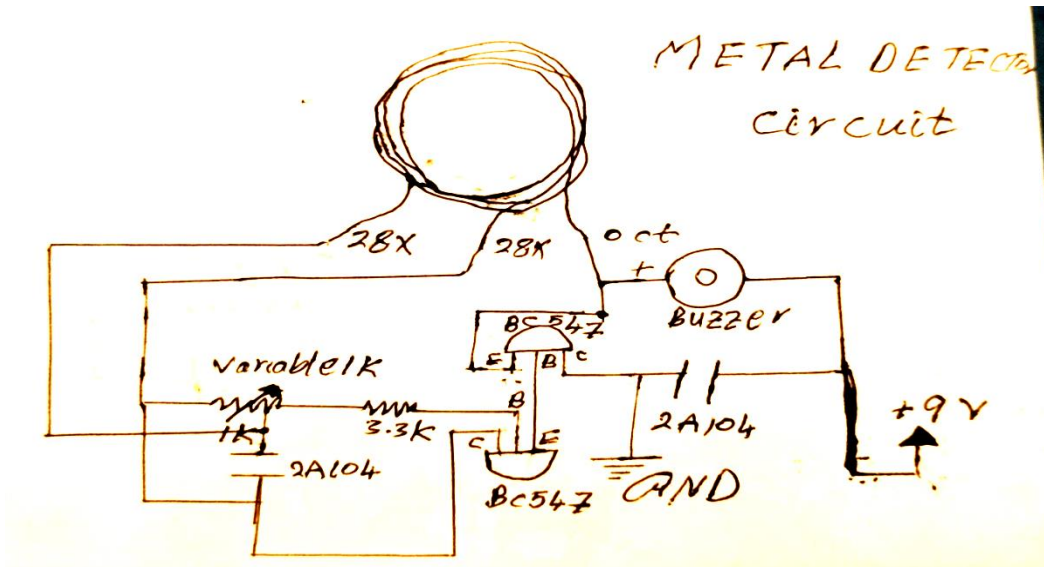 METAL DETECTOR
circuit
28X
28X
oct
+
Buzzer
BC547
E B C
variable1K
1K
3.3K
B
C E
2A104
2A104
+9V
BC547
GND